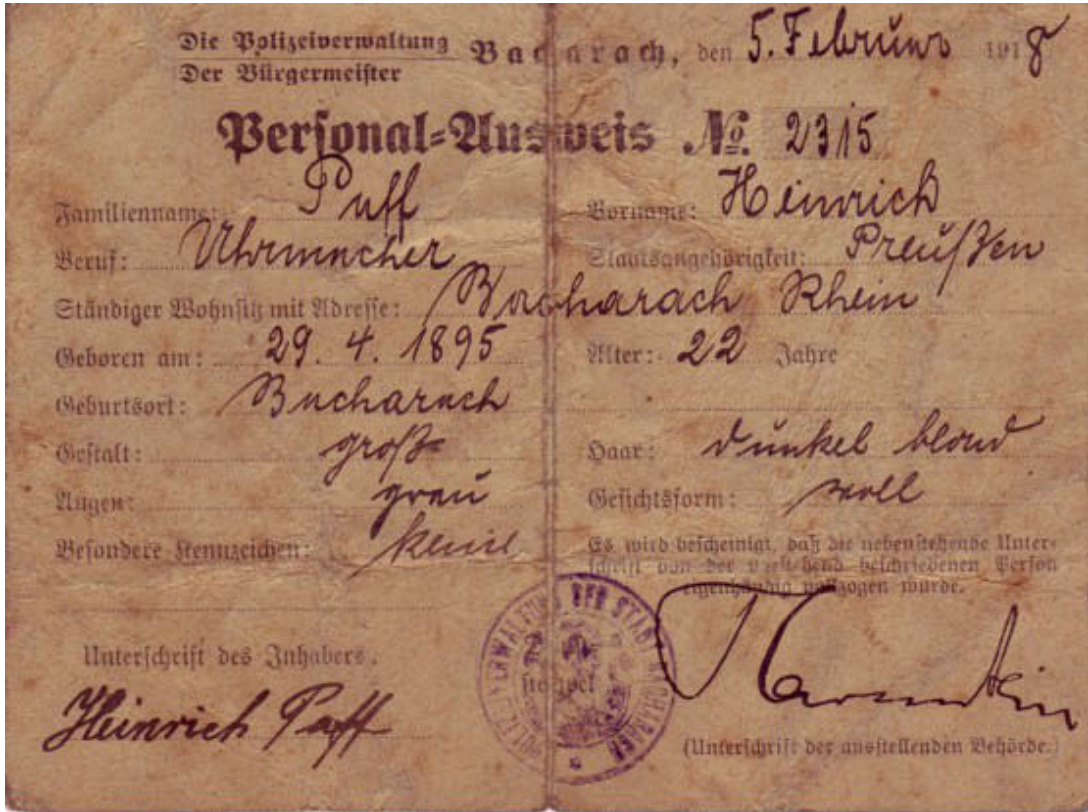 Die Polizeiverwaltung Bacharach, den 5. Februar 1918
Der Bürgermeister
Personal-Ausweis No. 2315
Familienname: Puff Vorname: Heinrich
Beruf: Uhrmacher Staatsangehörigkeit: Preußen
Ständiger Wohnsitz mit Adresse: Bacharach Rhein
Geboren am: 29. 4. 1895 Alter: 22 Jahre
Geburtsort: Bacharach
Gestalt: groß Haar: dunkel blond
Augen: grau Gesichtsform: voll
Besondere Kennzeichen: keine
Es wird bescheinigt, daß die nebenstehende Unter-
schrift von der vorstehend beschriebenen Person
eigenhändig vollzogen wurde.
Unterschrift des Inhabers.
Heinrich Puff
POLIZEIVERWALTUNG DER STADT BACHARACH
(Unterschrift der ausstellenden Behörde.)